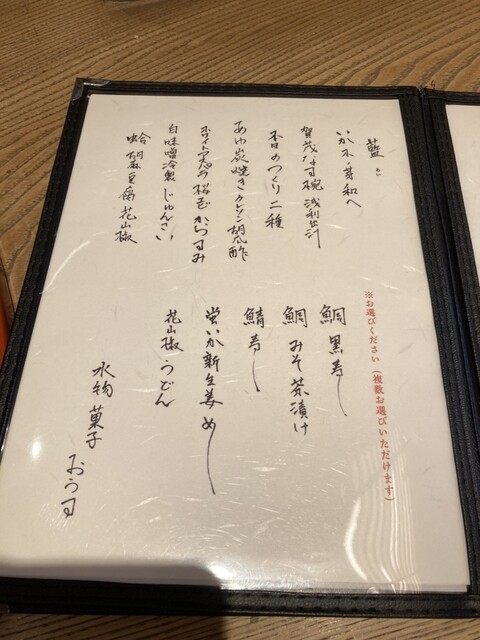 藍
あい
いか木ノ芽和へ
賀茂なす椀 浅利出汁
本日のつくり二種
あゆ炭焼きクレソン胡瓜酢
ホワイトアスパラ 桜ます からすみ
白味噌冷製 じゅんさい
蛤 胡麻豆腐 花山椒
※お選びください(複数お選びいただけます)
鯛 黒寿し
鯛 みそ茶漬け
鯖寿し
蛍いか新生姜めし
花山椒 うどん
水物 菓子 おうす